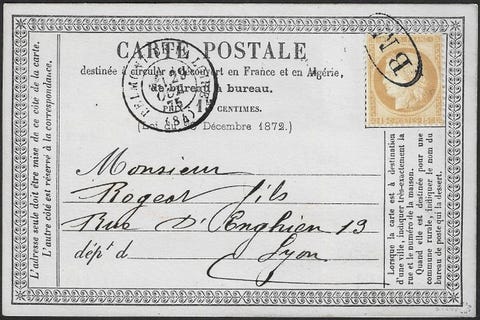 CARTE POSTALE
destinée à circuler à découvert en France et en Algérie,
de bureau à bureau.
CENTIMES.
Décembre 1872.)
BELMONT
25
OCT
75
(84)
BM
L'adresse seule doit être mise de ce côté de la carte.
L'autre côté est réservé à la correspondance.
Monsieur
Rogeat fils
Rue D'Enghien 13
dép't d
Lyon
Lorsque la carte est à destination
d'une ville, indiquer très-exactement la
rue et le numéro de la maison.
Quand elle est destinée pour une
commune rurale, indiquer le nom du
bureau de poste qui la dessert.